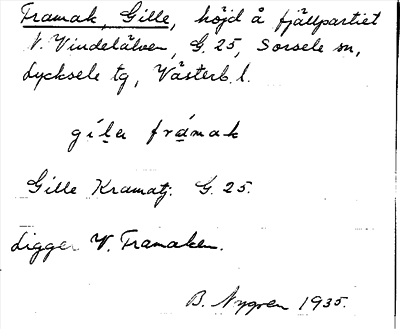 Framak, Gille, höjd å fjällpartiet
V. Vindelälven, G. 25, Sorsele sn,
Lycksele tg, Västerb. l.
gíle̱r frá̱mak
Gille Kramatj. G. 25.
Ligger V. Framaken.
B. Nygren 1935.